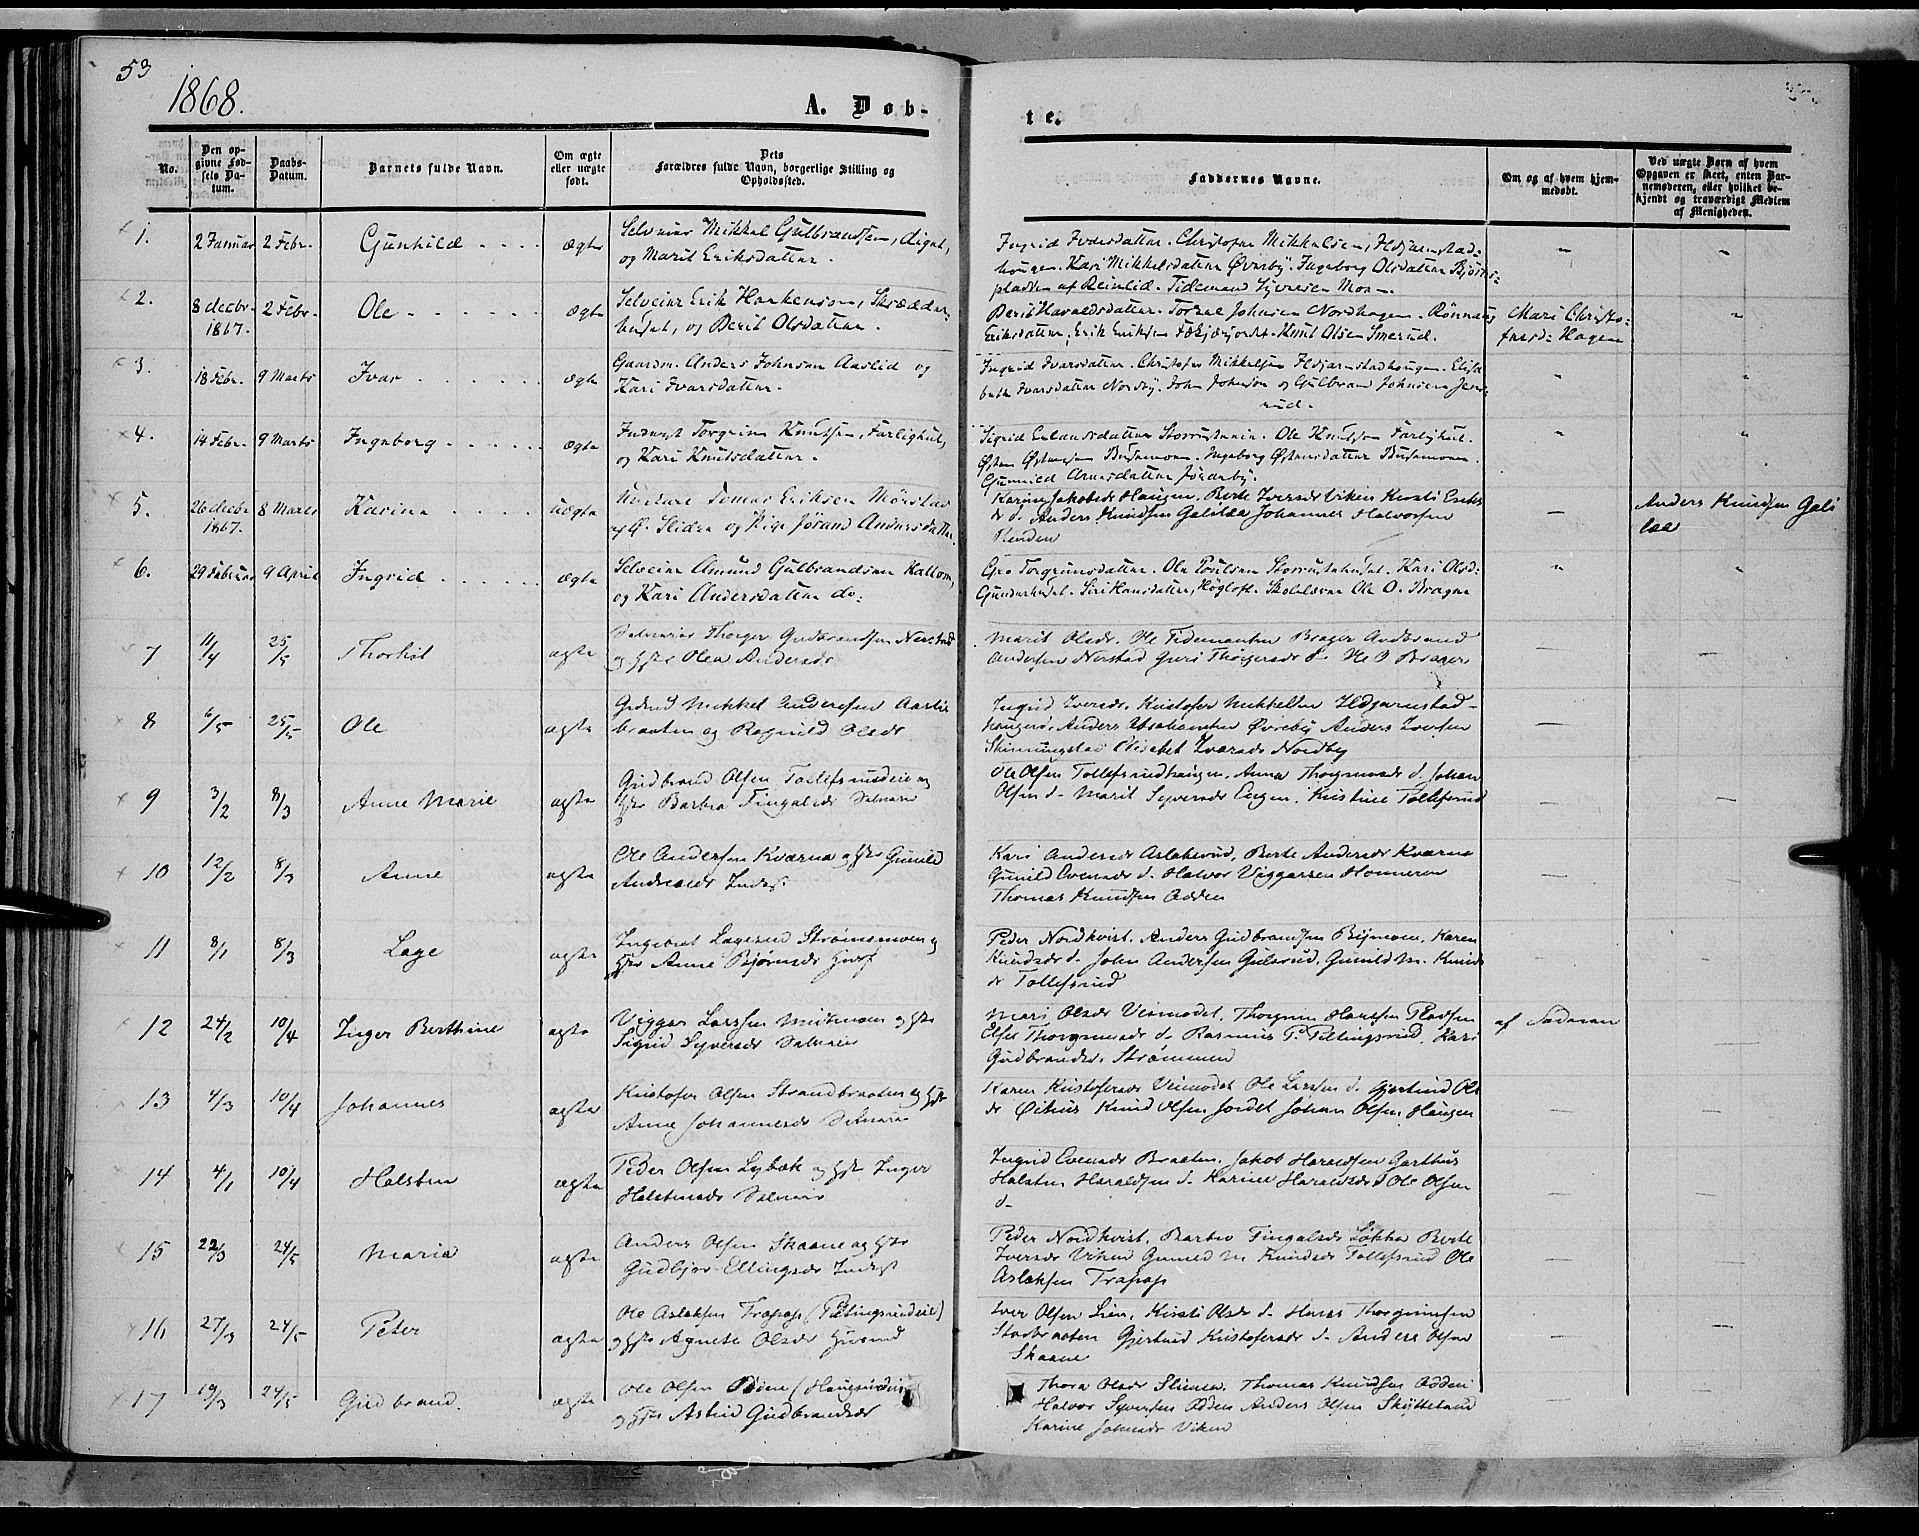 53
1868.
A. Døb-
te.
No.
Den op-
givne Fød-
sels Da-
tum.
Daabs-
Datum.
Barnets fulde Navn.
Om ægte
eller uægte
født.
Dets
Forældres fulde Navn, borgerlige Stilling og
Opholdssted.
Faddernes Navne.
Om og af hvem hjem-
medøbt.
Ved uægte Børn af hvem
Opgaven er skeet, enten Bar-
nemoderen, eller hvilket be-
kjendt og troværdigt Medlem
af Menigheden.
1. 2 Januar 2 Febr. Gunhild ægte Selveier Mikkel Gulbrandsen,
og Marit Eriksdatter.
Ingrid Ivarsdatter. Christofer Mikkelsen, Hdjarnstad-
haugen. Kari Mikkelsdatter Øvreby. Ingeborg Olsdatter Bjørns-
pladsen af Reinlid. Tidemand Syversen Moen.
2. 8 decbr. 1867. 2 Febr. Ole ægte Selveier Erik Haakensen, Skrædder-
huset, og Berit Olsdatter.
Berit Haraldsdatter. Torkel Johnsen Nordhagen. Rønnaug
Eriksdatter, Erik Eriksen. Knut Olsen Smerud.
Mari Christo-
fersd: Hagen
3. 18 Febr. 9 Marts Ivar ægte Gaardm. Anders Johnsen Aaslid og
Kari Ivarsdatter.
Ingrid Ivarsdatter. Christofer Mikkelsen Hdjarnstadhaugen. Elisa
beth Ivarsdatter Nordby. John Johnsen og Gulbrand Johnsen Jens-
rud.
4. 14 Febr. 9 Marts Ingeborg ægte Inderst Torgrim Knutsen, Farlighul,
og Kari Knutsdatter.
Sigrid Erlandsdatter. Ole Knutsen Farlighul.
Østen Østensen Busemoen. Ingeborg Østensdatter Busemoen.
Gunnild Arnesdatter Jøranby.
5. 26 decbr 1867. 8 Marts Karine uægte Tomas Eriksen Mørstad
og Ø. Slidre og Pige Jørand Andersdatter.
Karine Jakobsdr Haugen. Berte Iversdr Viken Kersti Eriks
dr d. Anders Knudsen Galilæa Johannes Halvorsen
Renden
Anders Knudsen Gali
læa
6. 29 Februar 9 April Ingrid ægte Selveier Amund Gulbrandsen Kattom,
og Kari Andersdatter do:
Gro Torgrimsdatter. Ole Poulsen Storrustehuset. Kari Olsd:
Gunderhuset. Siri Hansdatter, Høgloft. Skolelærer Ole O. Bragen
7 11/4 25/5 Thorkil ægte Selveier Thorger Gudbrandsen Nerstad
og Hst Olea Andersdr
Marit Olsdr. Ole Tidemansen Brager Gudbrand
Andersen Nerstad Guri Thorgersdr d. Ole O Brager
8 6/5 25/5 Ole ægte Mikkel Gundersen Aaslie
braaten og Ragnild Olsdr
Ingrid Iversdr. Kristofer Mikkelsen Hdjarnstad-
haugen, Anders Abrahamsen Øvreby Anders Iversen
Skinningstad Elisabet Ivarsdr Nordby
9 3/2 8/3 Anne Marie ægte Gudbrand Olsen Tollefsrudeie og
Hst Barbro Fingalsdr Selveier
Ole Olsen Tollefsrudhaugen, Anna Thorgrimsdr d. Johan
Olsen d. Marit Syversdr Engen. Kristine Tollefsrud
10 12/2 8/3 Anne ægte Ole Andersen Kværna og Hst Gunild
Andreasdr Inderst
Kari Andersdr Aslakerud, Berte Andersdr Kværna
Gunild Evensdr d. Halvor Viggersen Honneren
Thomas Knudsen Odden
11 8/1 8/3 Lage ægte Ingebret Lagesen Strømsmoen og
Hst Anne Bjørnsdr
Peder Nordkvist. Anders Gudbrandsen Bymoen. Karen
Knudsdr d. John Andersen Gulsrud. Gunild M. Knuds
dr Tollefsrud
12 24/2 10/4 Inger Berthine ægte Vigger Larssen Midtmoen og Hst
Sigrid Syversdr Selveier
Mari Olsdr Veimodet. Thorgrim Hansen Pladsen
Elsie Thorgrimsdr d. Rasmus P. Pettingsrud. Kari
Gudbrandsdr. Strømmen
af
13 4/3 10/4 Johannes ægte Kristofer Olsen Strandbraaten og Hst
Anne Johannesdr Selveier
Karen Kristofersdr Veimodet Ole Larssen d. Gjertrud Ols
dr Knud Olsen Jordet Johan Olsen Haugen
14 4/1 10/4 Halsten ægte Peder Olsen Lybæk og Hst Inger
Halstensdr Selveier
Ingrid Evensdr Braaten. Jakob Haraldsen Garthus
Halsten Haraldsen d. Karine Haraldsdr d Ole Olsen
d-
15 22/3 24/5 Maria ægte Anders Olsen Skaane og Hst
Gudbjør Ellingsdr Inderst
Peder Nordkvist, Barbro Fingalsdr Løkka Berte
Iversdr Viken Gunild M. Knudsdr Tollefsrud Ole
Aslaksen Trapap
16 27/3 24/5 Peter ægte Ole Aslaksen Trapap (Pettingsrudeie)
og Hst Agnete Olsdr Husmd
Iver Olsen Lien, Kirsti Olsdr d. Hans Thorgrimsen
Stadbraaten Gjertrud Kristofersdr d. Anders Olsen
Skaane
17 19/3 24/5 Gudbrand. ægte Ole Olsen (Haugsrudeie)
og Hst Astrid Gudbrandsdr
Thora Olsdr Slinsa. Thomas Knudsen Odden
Halvor Syversen Odden Anders Olsen Skøtteland
Karine Johnsdr Viken